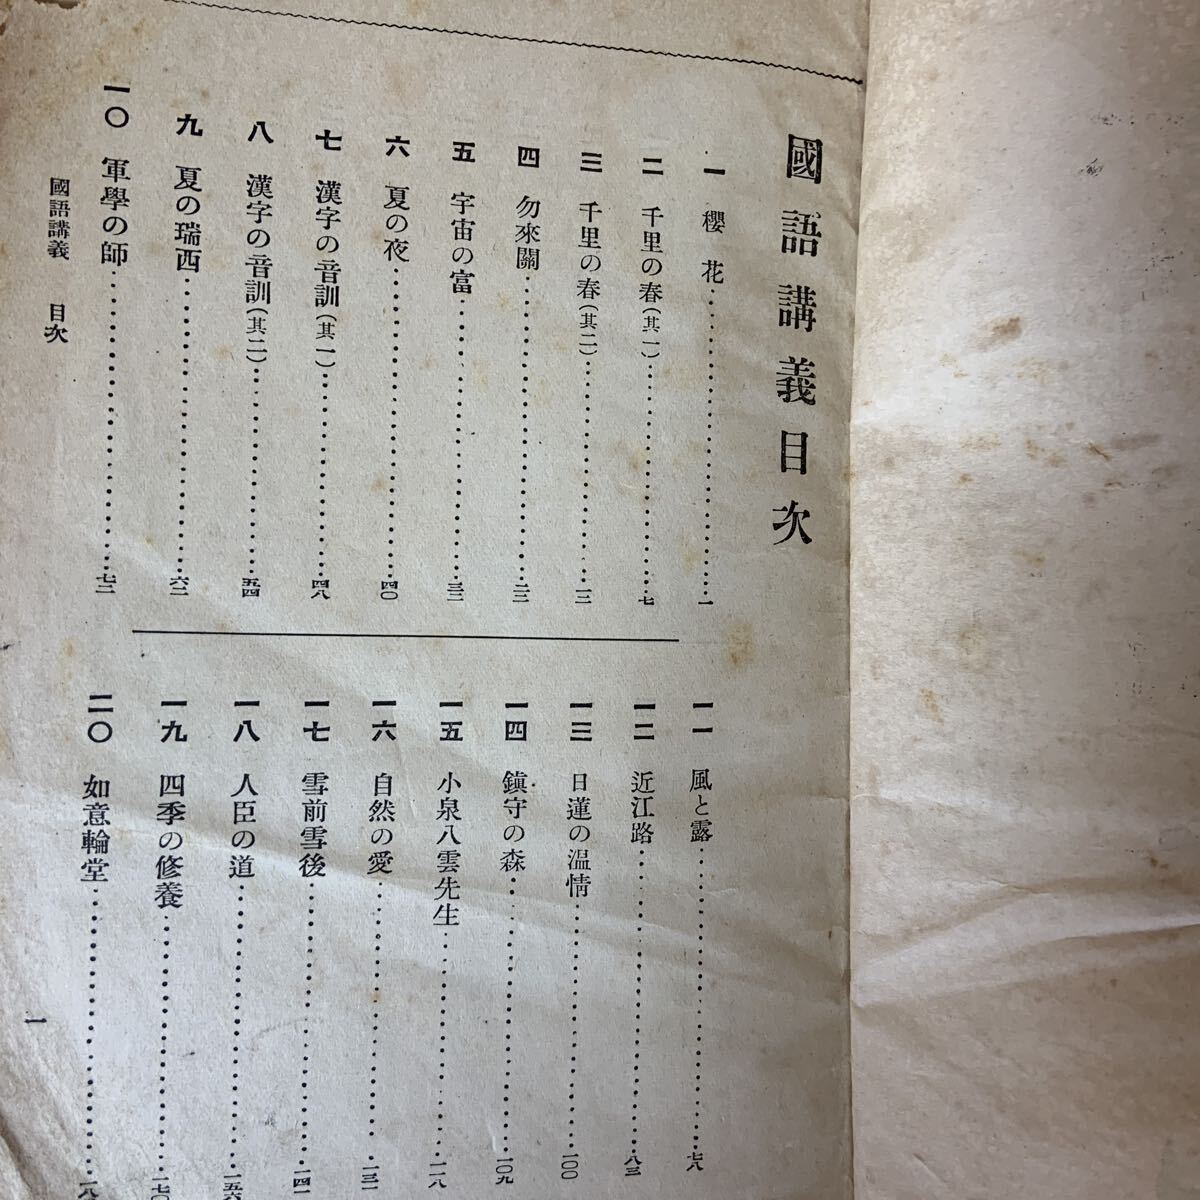 國語講義目次
一 櫻花……一
二 千里の春(其一)……七
三 千里の春(其二)……一三
四 勿來關……二三
五 宇宙の富……三二
六 夏の夜……四〇
七 漢字の音訓(其一)……四八
八 漢字の音訓(其二)……五四
九 夏の瑞西……六二
一〇 軍學の師……七二
一一 風と露……七八
一二 近江路……八三
一三 日蓮の溫情……一〇〇
一四 鎭守の森……一〇九
一五 小泉八雲先生……一一八
一六 自然の愛……一三一
一七 雪前雪後……一四一
一八 人臣の道……一五六
一九 四季の修養……一七〇
二〇 如意輪堂……一八
國語講義 目次
一